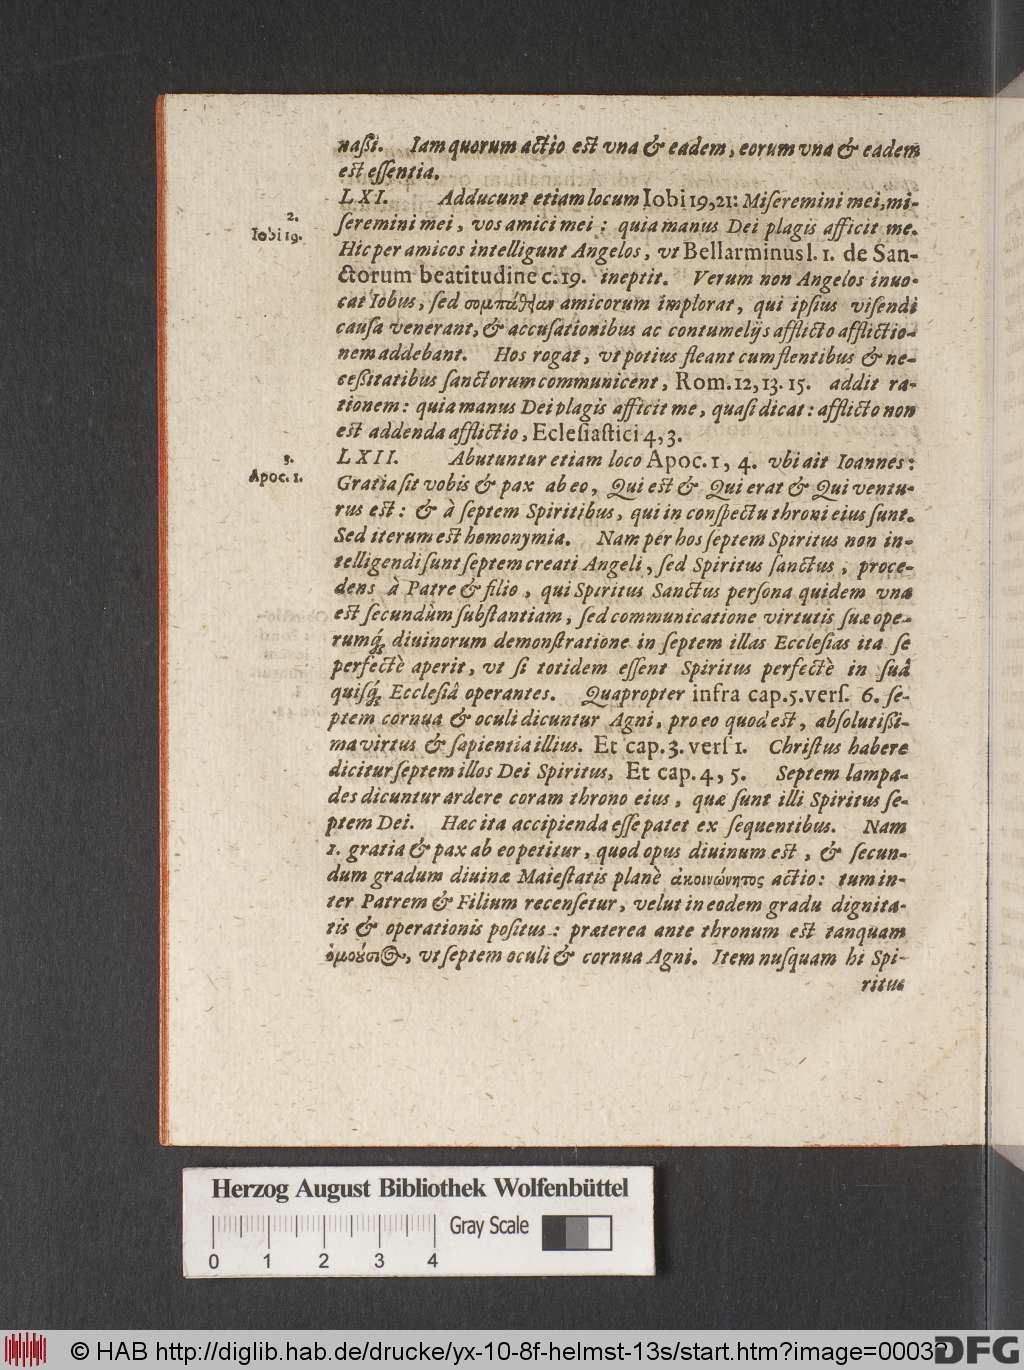 naſsi. Iam quorum actio est vna & eadem, eorum vna & eadem
est eſſentia.
LXI. Adducunt etiam locum Iobi 19, 21: Miſeremini mei, mi-
2.
Iobi 19.
ſeremini mei, vos amici mei: quia manus Dei plagis afficit me.
Hic per amicos intelligunt Angelos, vt Bellarminus l. 1. de San-
ctorum beatitudine c. 19. ineptit. Verum non Angelos inuo-
cat Iobus, ſed συμπάθειαν amicorum implorat, qui ipſius viſendi
cauſa venerant, & accuſationibus ac contumelijs afflicto afflictio-
nem addebant. Hos rogat, vt potius fleant cum flentibus & ne-
ceſsitatibus ſanctorum communicent, Rom. 12, 13. 15. addit ra-
tionem: quia manus Dei plagis afficit me, quaſi dicat: afflicto non
est addenda afflictio, Eclesiaſtici 4, 3.
3.
Apoc. 1.
LXII. Abutuntur etiam loco Apoc. 1, 4. vbi ait Ioannes:
Gratia ſit vobis & pax ab eo, Qui est & Qui erat & Qui ventu-
rus est: & à ſeptem Spiritibus, qui in conſpectu throni eius ſunt.
Sed iterum est homonymia. Nam per hos ſeptem Spiritus non in-
telligendi ſunt ſeptem creati Angeli, ſed Spiritus ſanctus, proce-
dens à Patre & filio, qui Spiritus Sanctus perſona quidem vna
est ſecundùm ſubſtantiam, ſed communicatione virtutis ſuæ ope-
rumq́; diuinorum demonſtratione in ſeptem illas Eccleſias ita ſe
perfectè aperit, vt ſi totidem eſſent Spiritus perfectè in ſuâ
quiſq́; Eccleſiâ operantes. Quapropter infra cap. 5. verſ. 6. ſe-
ptem cornua & oculi dicuntur Agni, pro eo quod est, abſolutiſsi-
ma virtus & ſapientia illius. Et cap. 3. verſ 1. Chriſtus habere
dicitur ſeptem illos Dei Spiritus, Et cap. 4, 5. Septem lampa-
des dicuntur ardere coram throno eius, quæ ſunt illi Spiritus ſe-
ptem Dei. Hæc ita accipienda eſſe patet ex ſequentibus. Nam
1. gratia & pax ab eo petitur, quod opus diuinum est, & ſecun-
dum gradum diuinæ Maieſtatis planè ἀκοινώνητος actio: tum in-
ter Patrem & Filium recenſetur, velut in eodem gradu dignita-
tis & operationis poſitus: præterea ante thronum est tanquam
ὁμούσιος, vt ſeptem oculi & cornua Agni. Item nuſquam hi Spi-
ritus
Herzog August Bibliothek Wolfenbüttel
Gray Scale
0 1 2 3 4
© HAB http://diglib.hab.de/drucke/yx-10-8f-helmst-13s/start.htm?image=00037
DFG